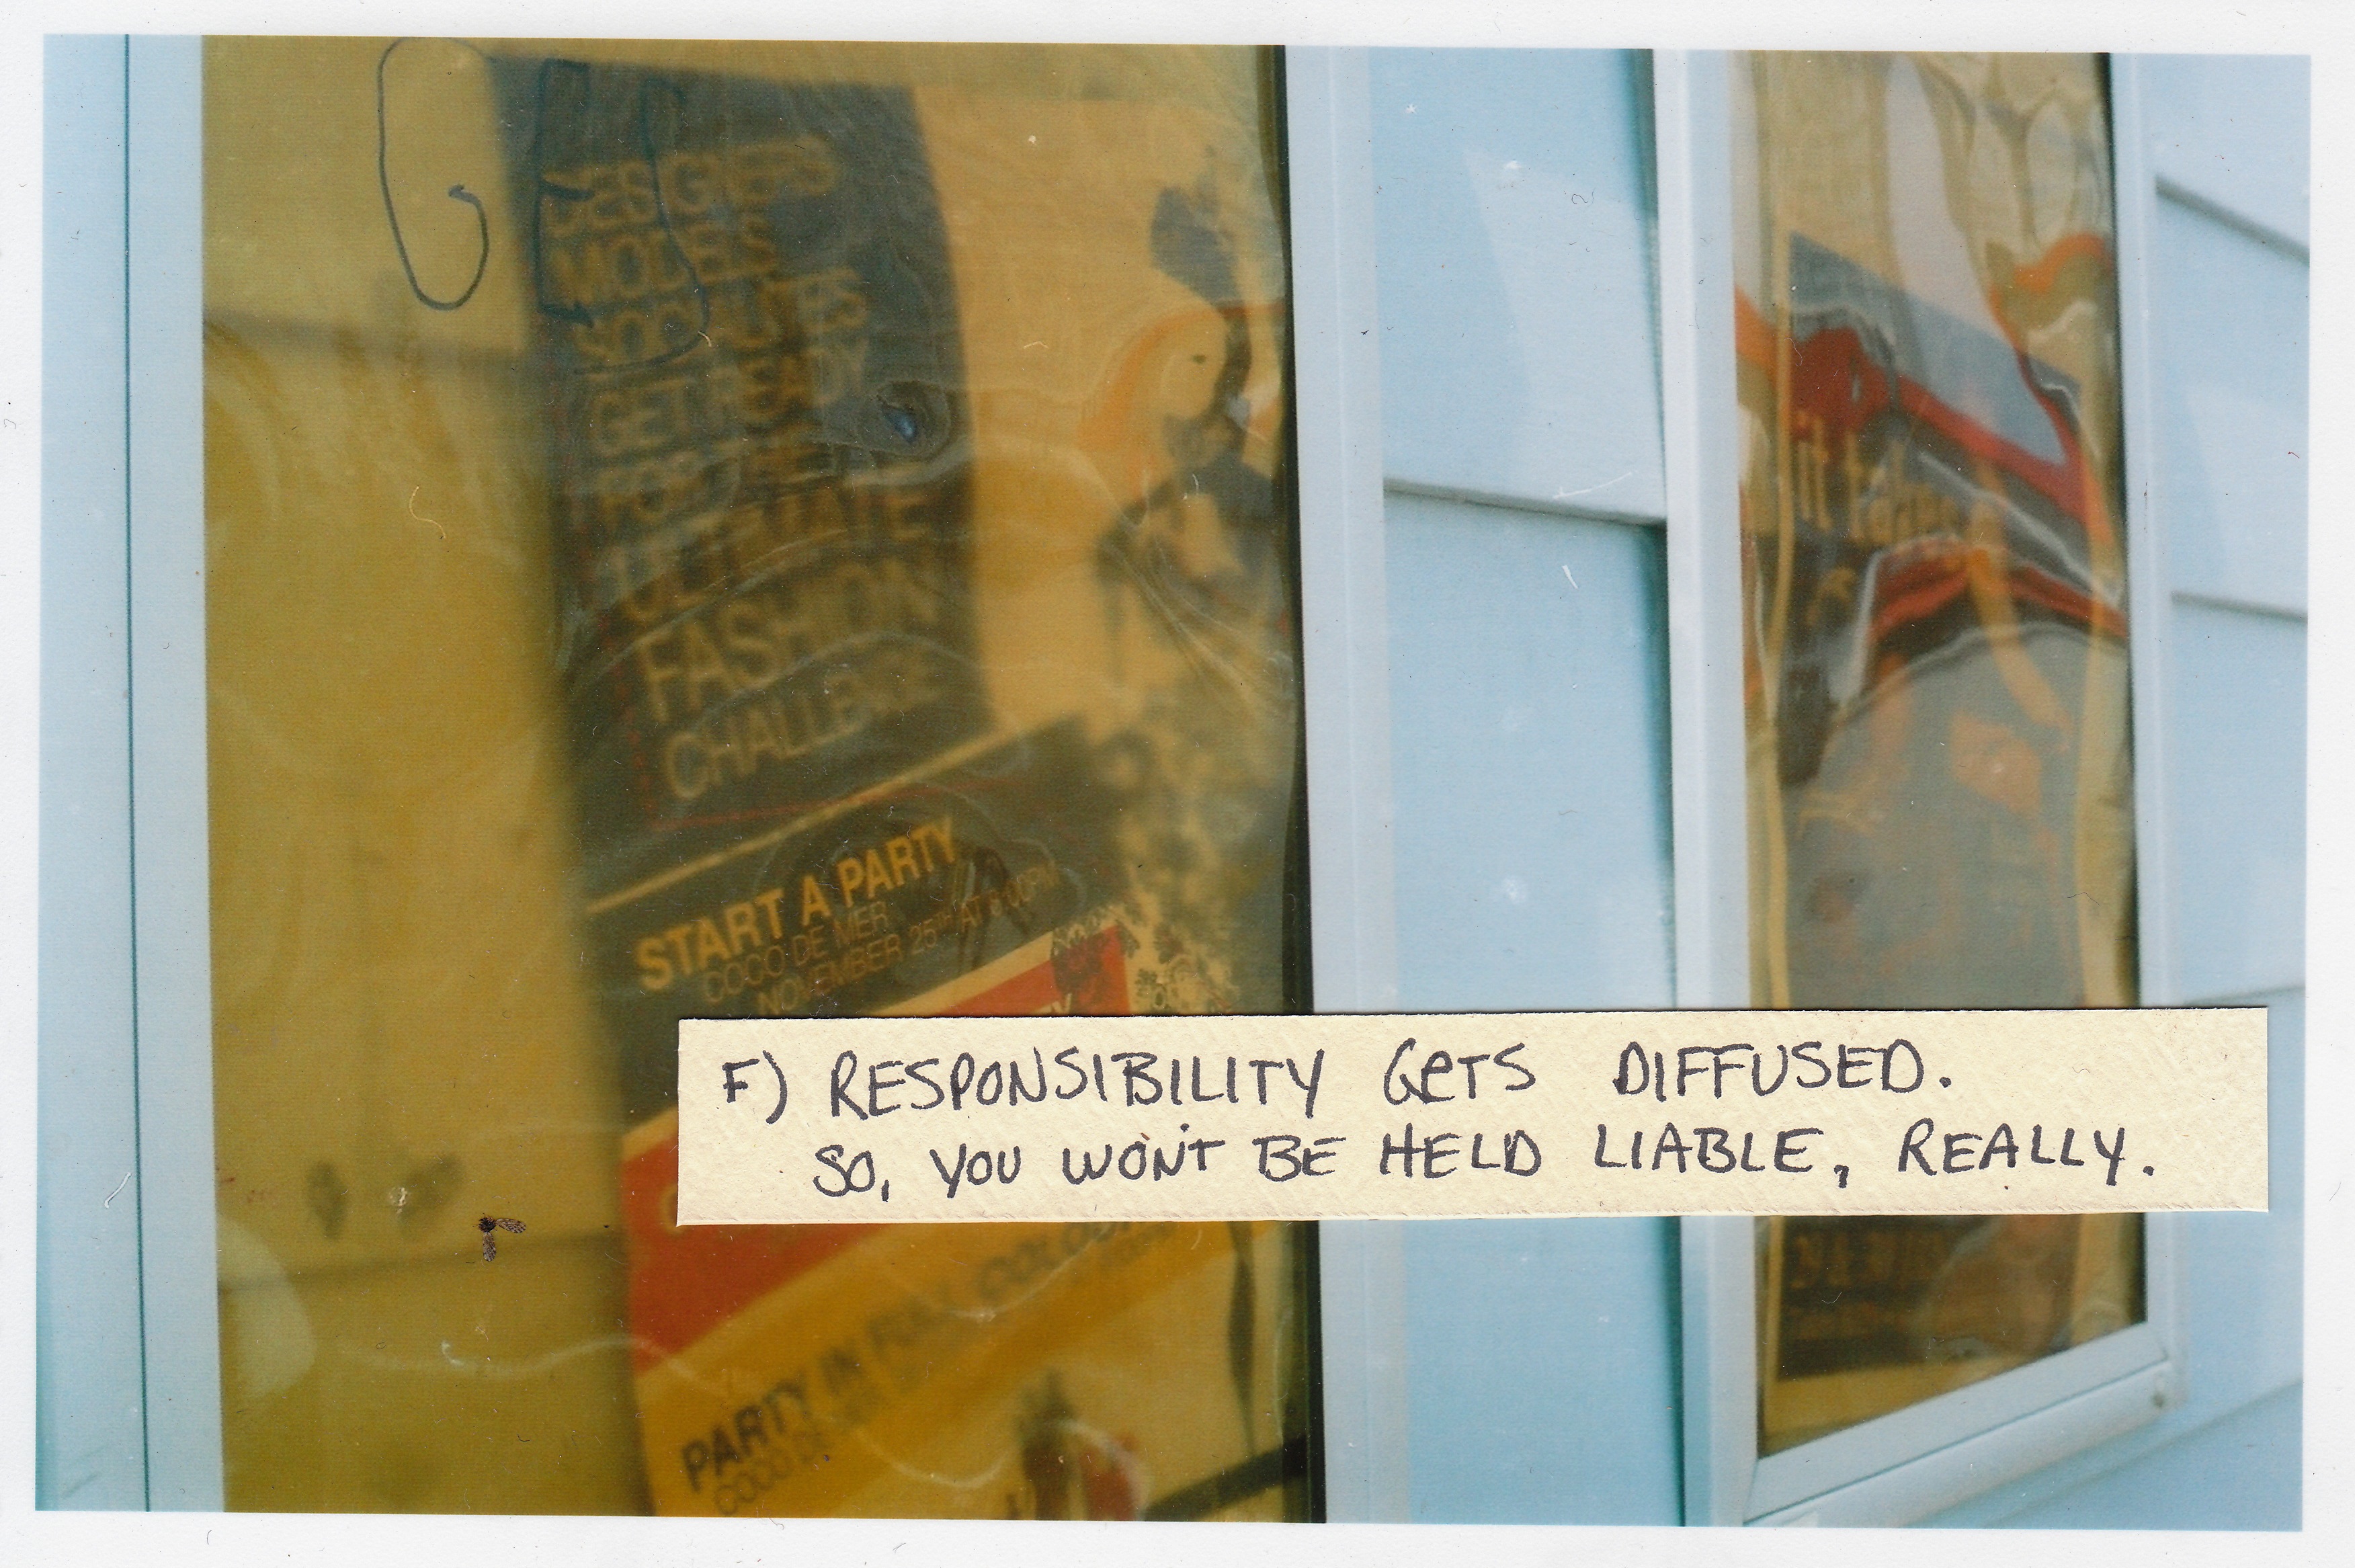 DESIGNERS
MODELS
SOCIALITES
GET READY
FOR THE
ULTIMATE
FASHION
CHALLENGE
START A PARTY
COCO DE MER
NOVEMBER 25TH AT
it takes
F) RESPONSIBILITY GeTS DIFFUSED.
SO, YOU WON'T BE HELD LIABLE, REALLY.
PARTY IN
COCO DE